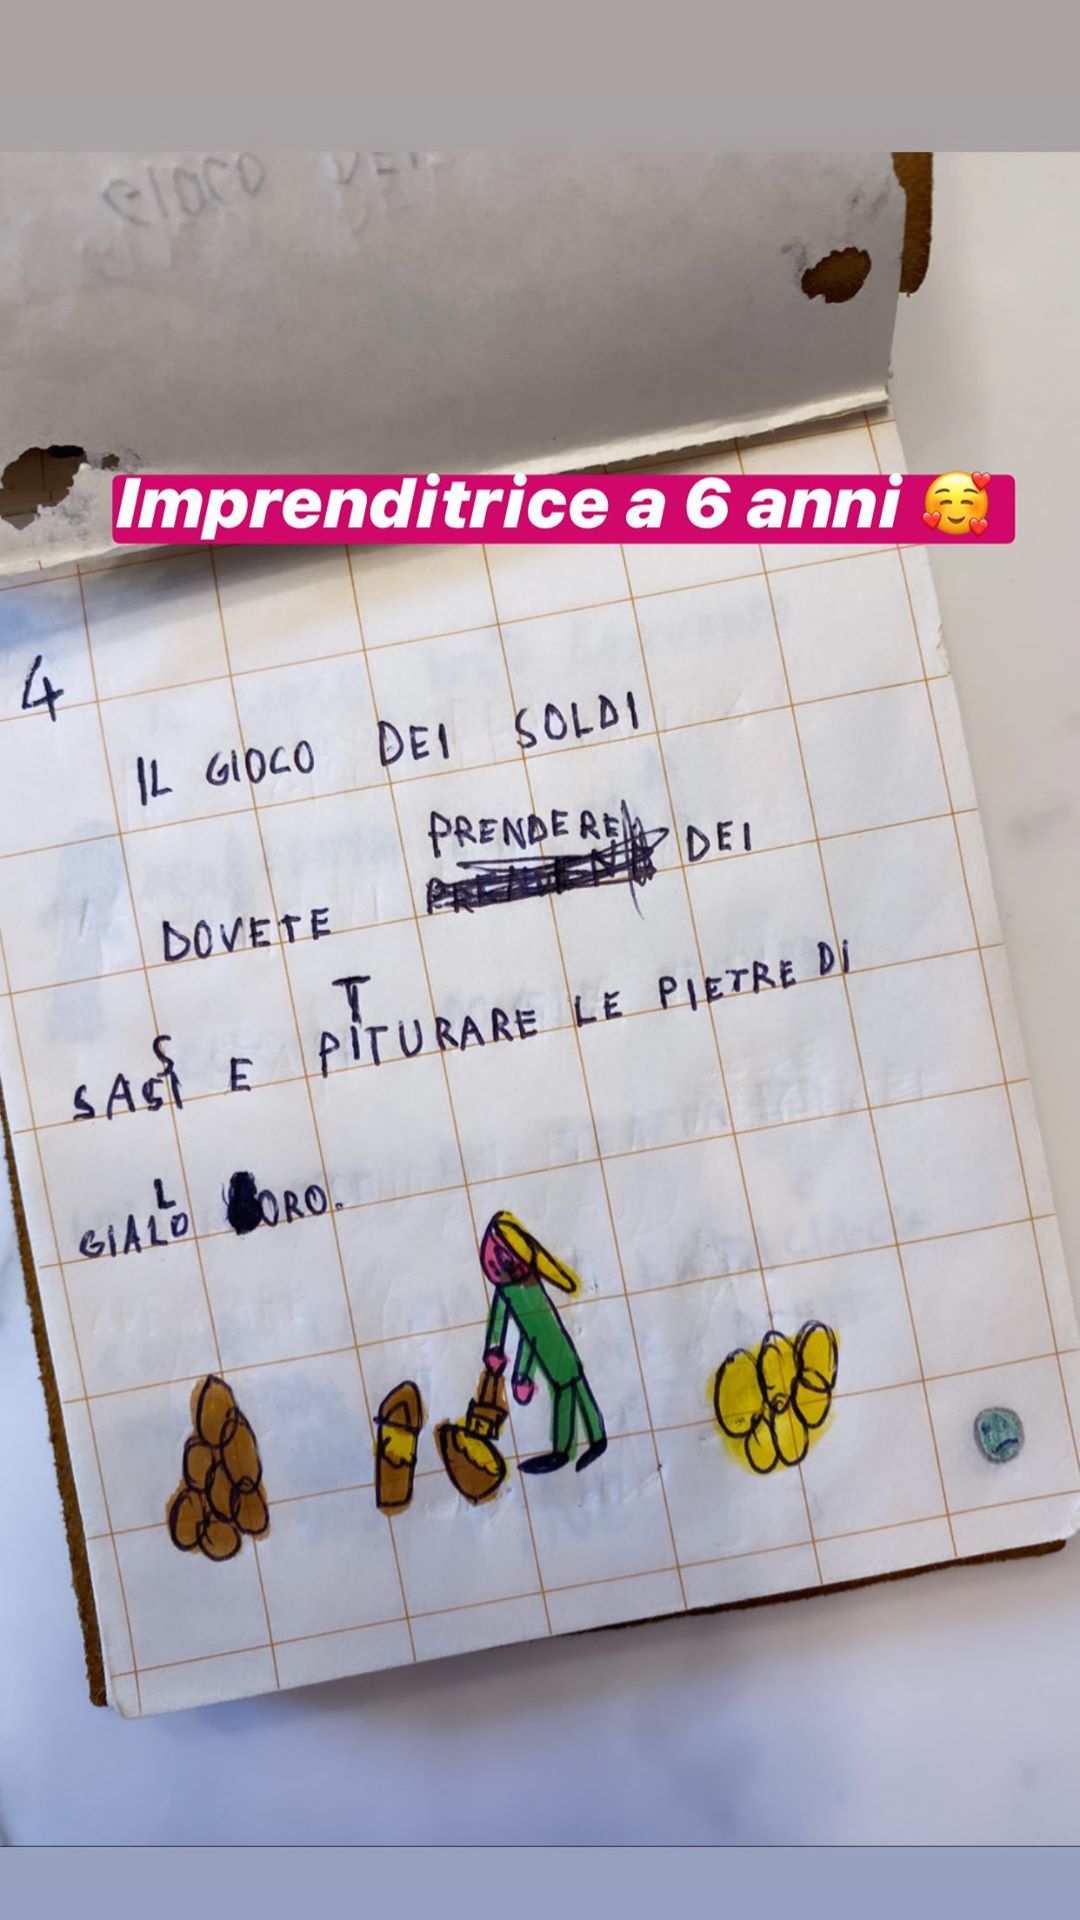 GIOCO DEI
Imprenditrice a 6 anni 🥰
4
IL GIOCO DEI SOLDI
PRENDERE
DOVETE DEI
S T
SASI E PITURARE LE PIETRE DI
L
GIALO ORO.